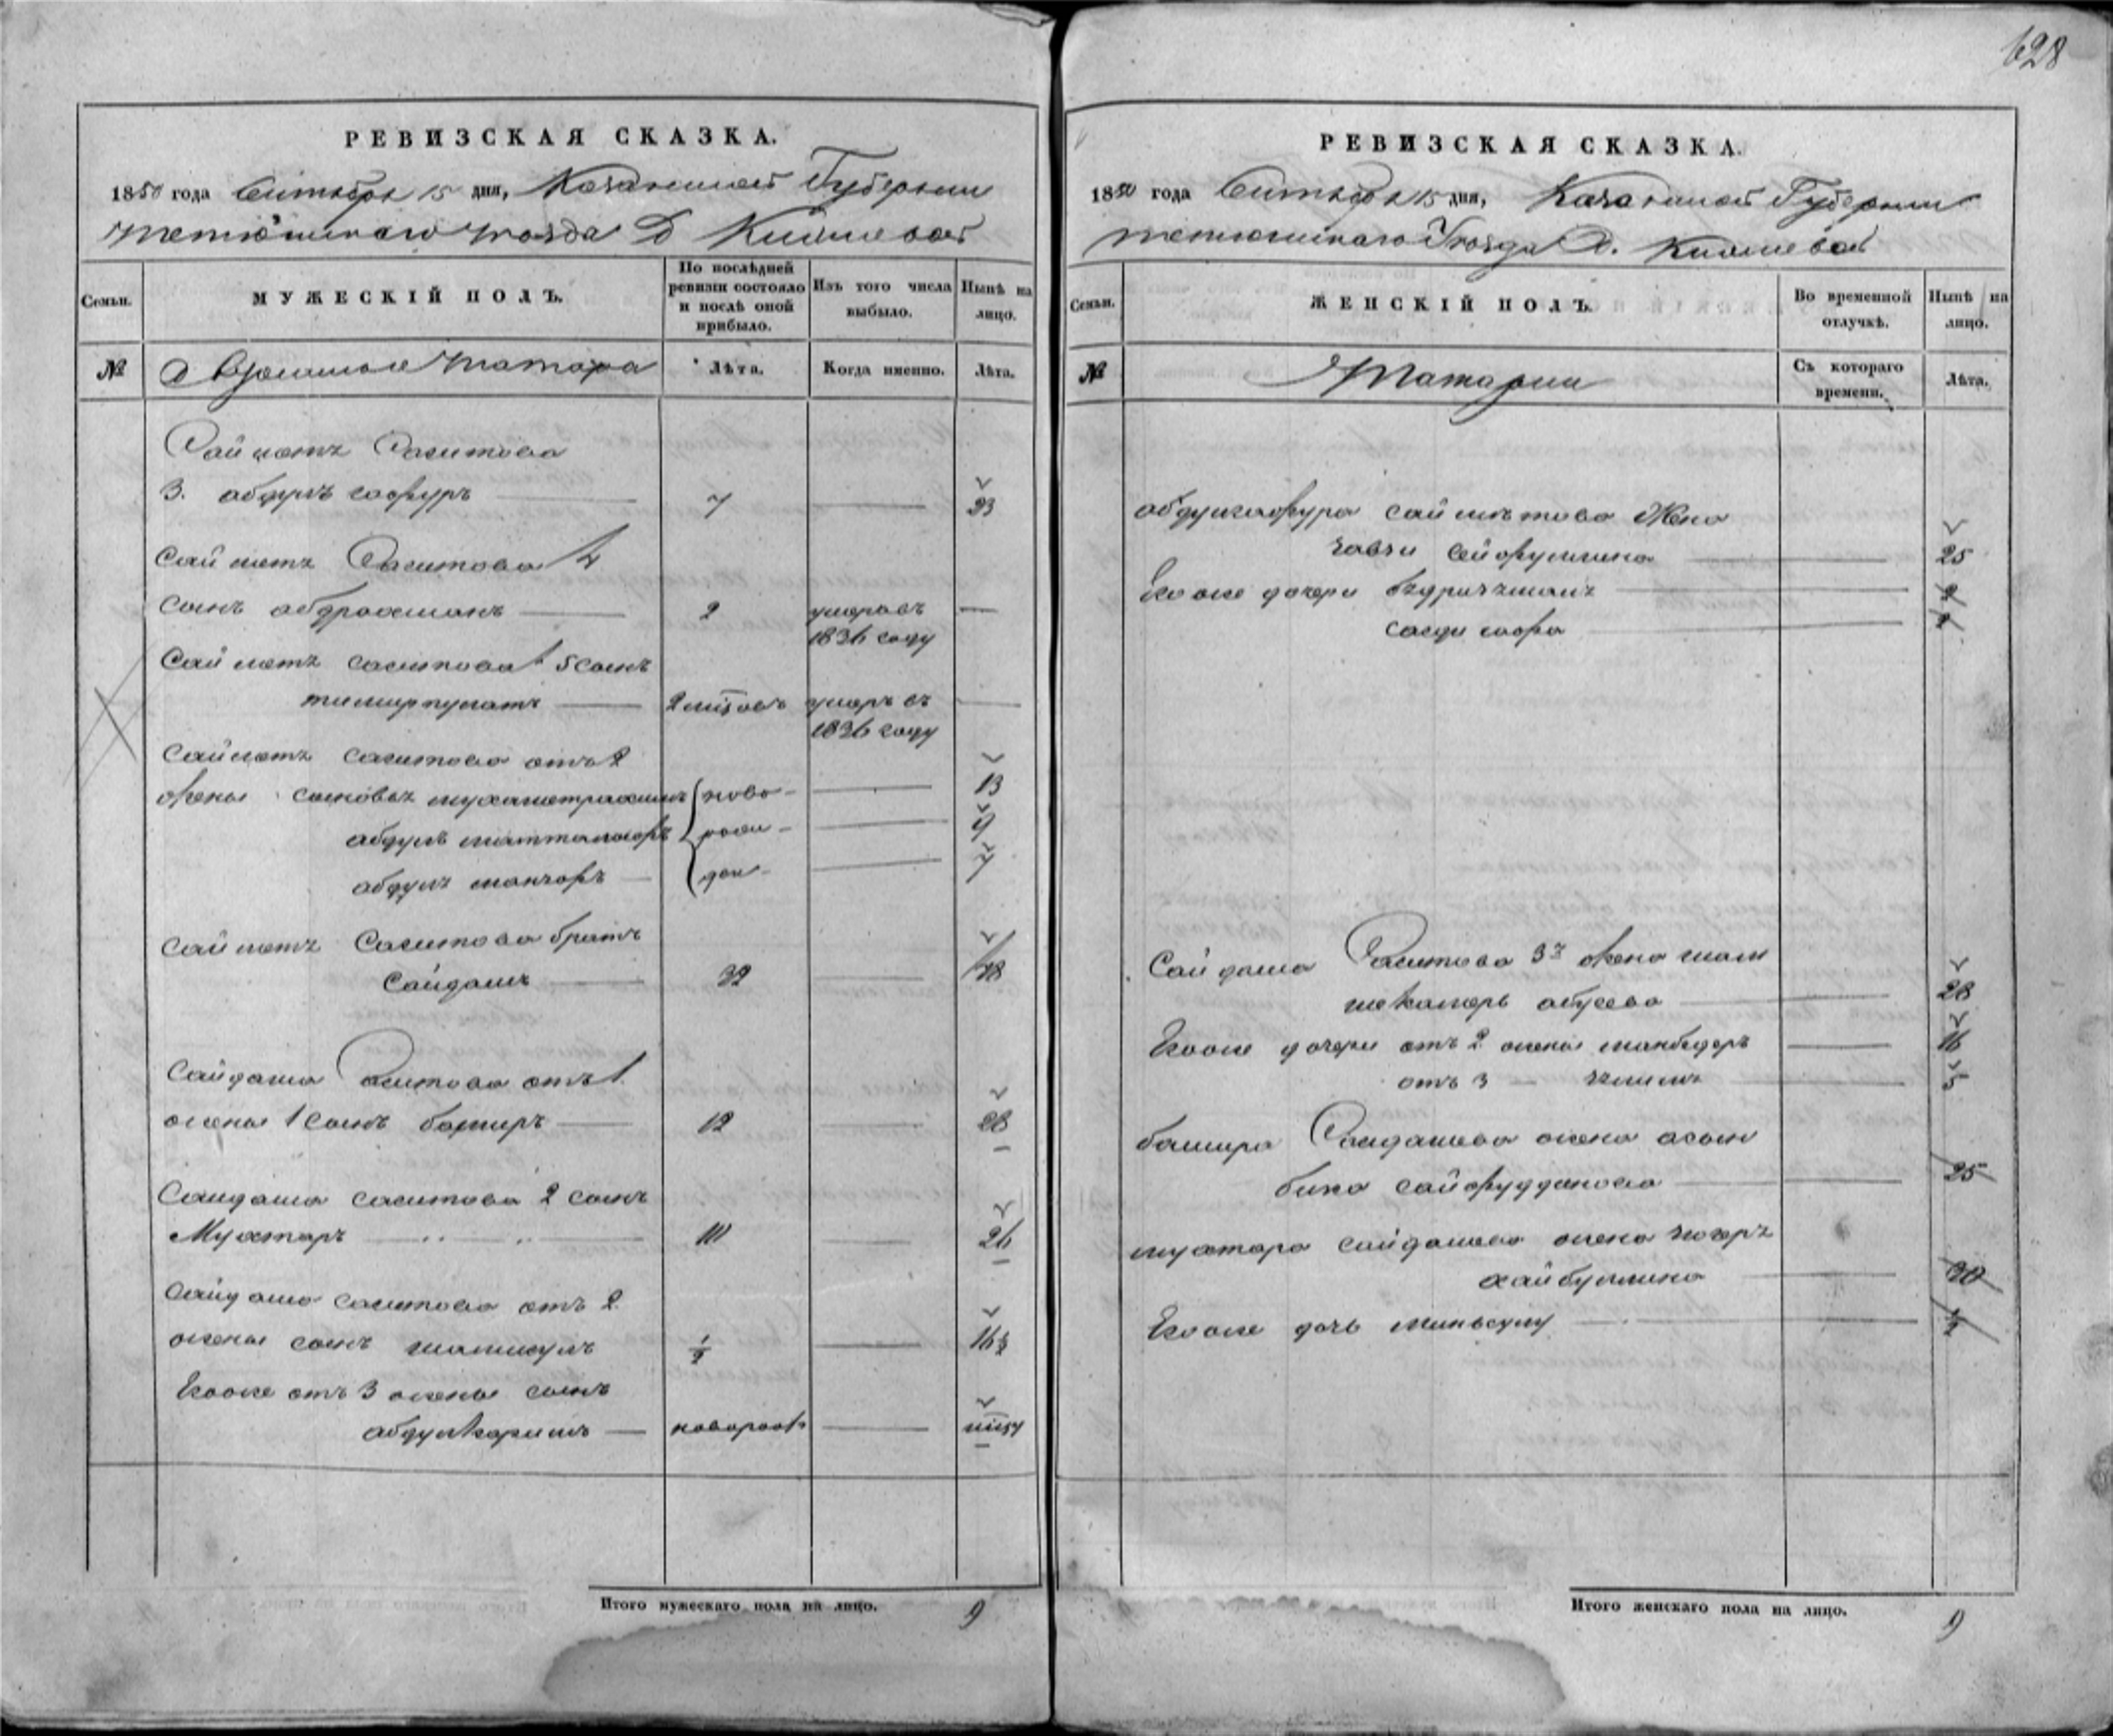 628
РЕВИЗСКАЯ СКАЗКА.
1850 года Сентября 15 дня, Казанской Губернии
Тетюшского уезда Д Кияшевой
Семьи.
МУЖЕСКІЙ ПОЛЪ.
По послѣдней ревизіи состояло и послѣ оной прибыло.
Изъ того числа выбыло.
Нынѣ на лицо.
№
татара
Лѣта.
Когда именно.
Лѣта.
Сайметъ Саситова
3. абдулъ гафуръ 7 23
Сайметъ Саситова 4
сынъ абдрахманъ 2 умеръ въ
1836 году
Сайметъ саситова 5 сынъ
тимирпулатъ 2 мцовъ умеръ въ
1836 году
Сайметъ саситова отъ 2
жены сыновья мухаметрахимъ ново- 13
абдулъ рож- 9
абдулъ ден- 7
Сайметъ Саситова братъ
Сайдашъ 32 48
Сайдаша Саситова отъ 1
жены 1 сынъ баширъ 12 28
Сайдаша саситова 2 сынъ
Мухтаръ 10 26
Сайдаша саситова отъ 2
жены сынъ 1/2 16 1/2
Ево же отъ 3 жены сынъ
абдулкаримъ новорож
Итого мужескаго пола на лицо. 9
РЕВИЗСКАЯ СКАЗКА.
1850 года Сентября 15 дня, Казанской Губернии
тетюшского Уезда Д. Кияшевой
Семьи.
ЖЕНСКІЙ ПОЛЪ.
Во временной отлучкѣ.
Нынѣ на лицо.
№
Татарки
Съ котораго времени.
Лѣта.
абдулгафура сайметова жена
сайфуллина 25
Ево же дочери
Сайдаша Саситова 3я жена
абусева 28
Ево же дочери отъ 2 жены 16
отъ 3 5
башира Сайдашева жена
бика сайфудданова 25
мухтара сайдашева жена
хайбуллина 20
Ево же дочь миньсулу 1/2
Итого женскаго пола на лицо. 9